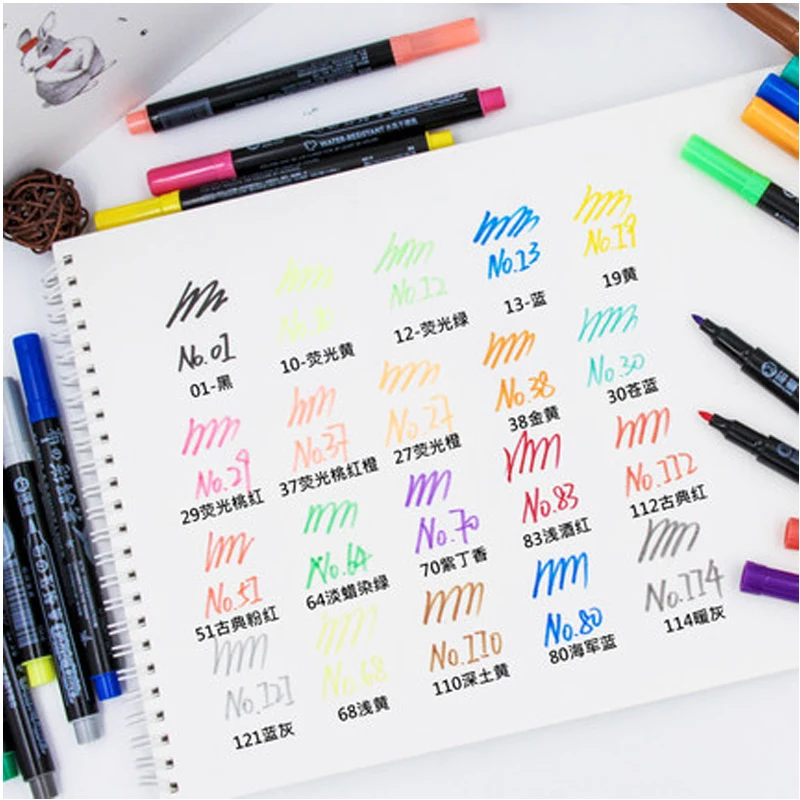 WATER-RESISTANT
No.01
01-黑
No.10
10-荧光黄
No.12
12-荧光绿
No.13
13-蓝
No.19
19黄
No.29
29荧光桃红
No.37
37荧光桃红橙
No.27
27荧光橙
No.38
38金黄
No.30
30苍蓝
No.51
51古典粉红
No.64
64淡蜡染绿
No.70
70紫丁香
No.83
83浅酒红
No.112
112古典红
No.121
121蓝灰
No.68
68浅黄
No.110
110深土黄
No.80
80海军蓝
No.114
114暖灰